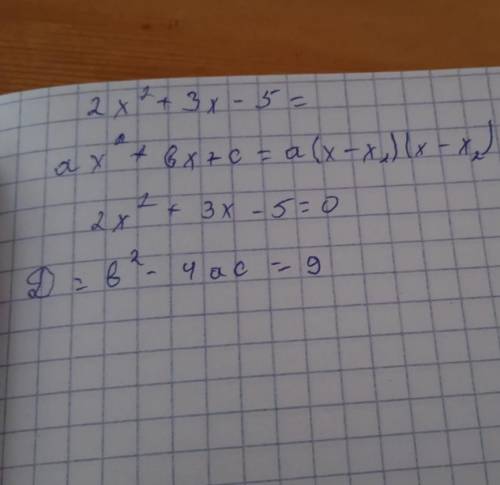 2x² + 3x - 5 =
ax² + bx + c = a(x - x₁)(x - x₂)
2x² + 3x - 5 = 0
D = b² - 4ac = 9